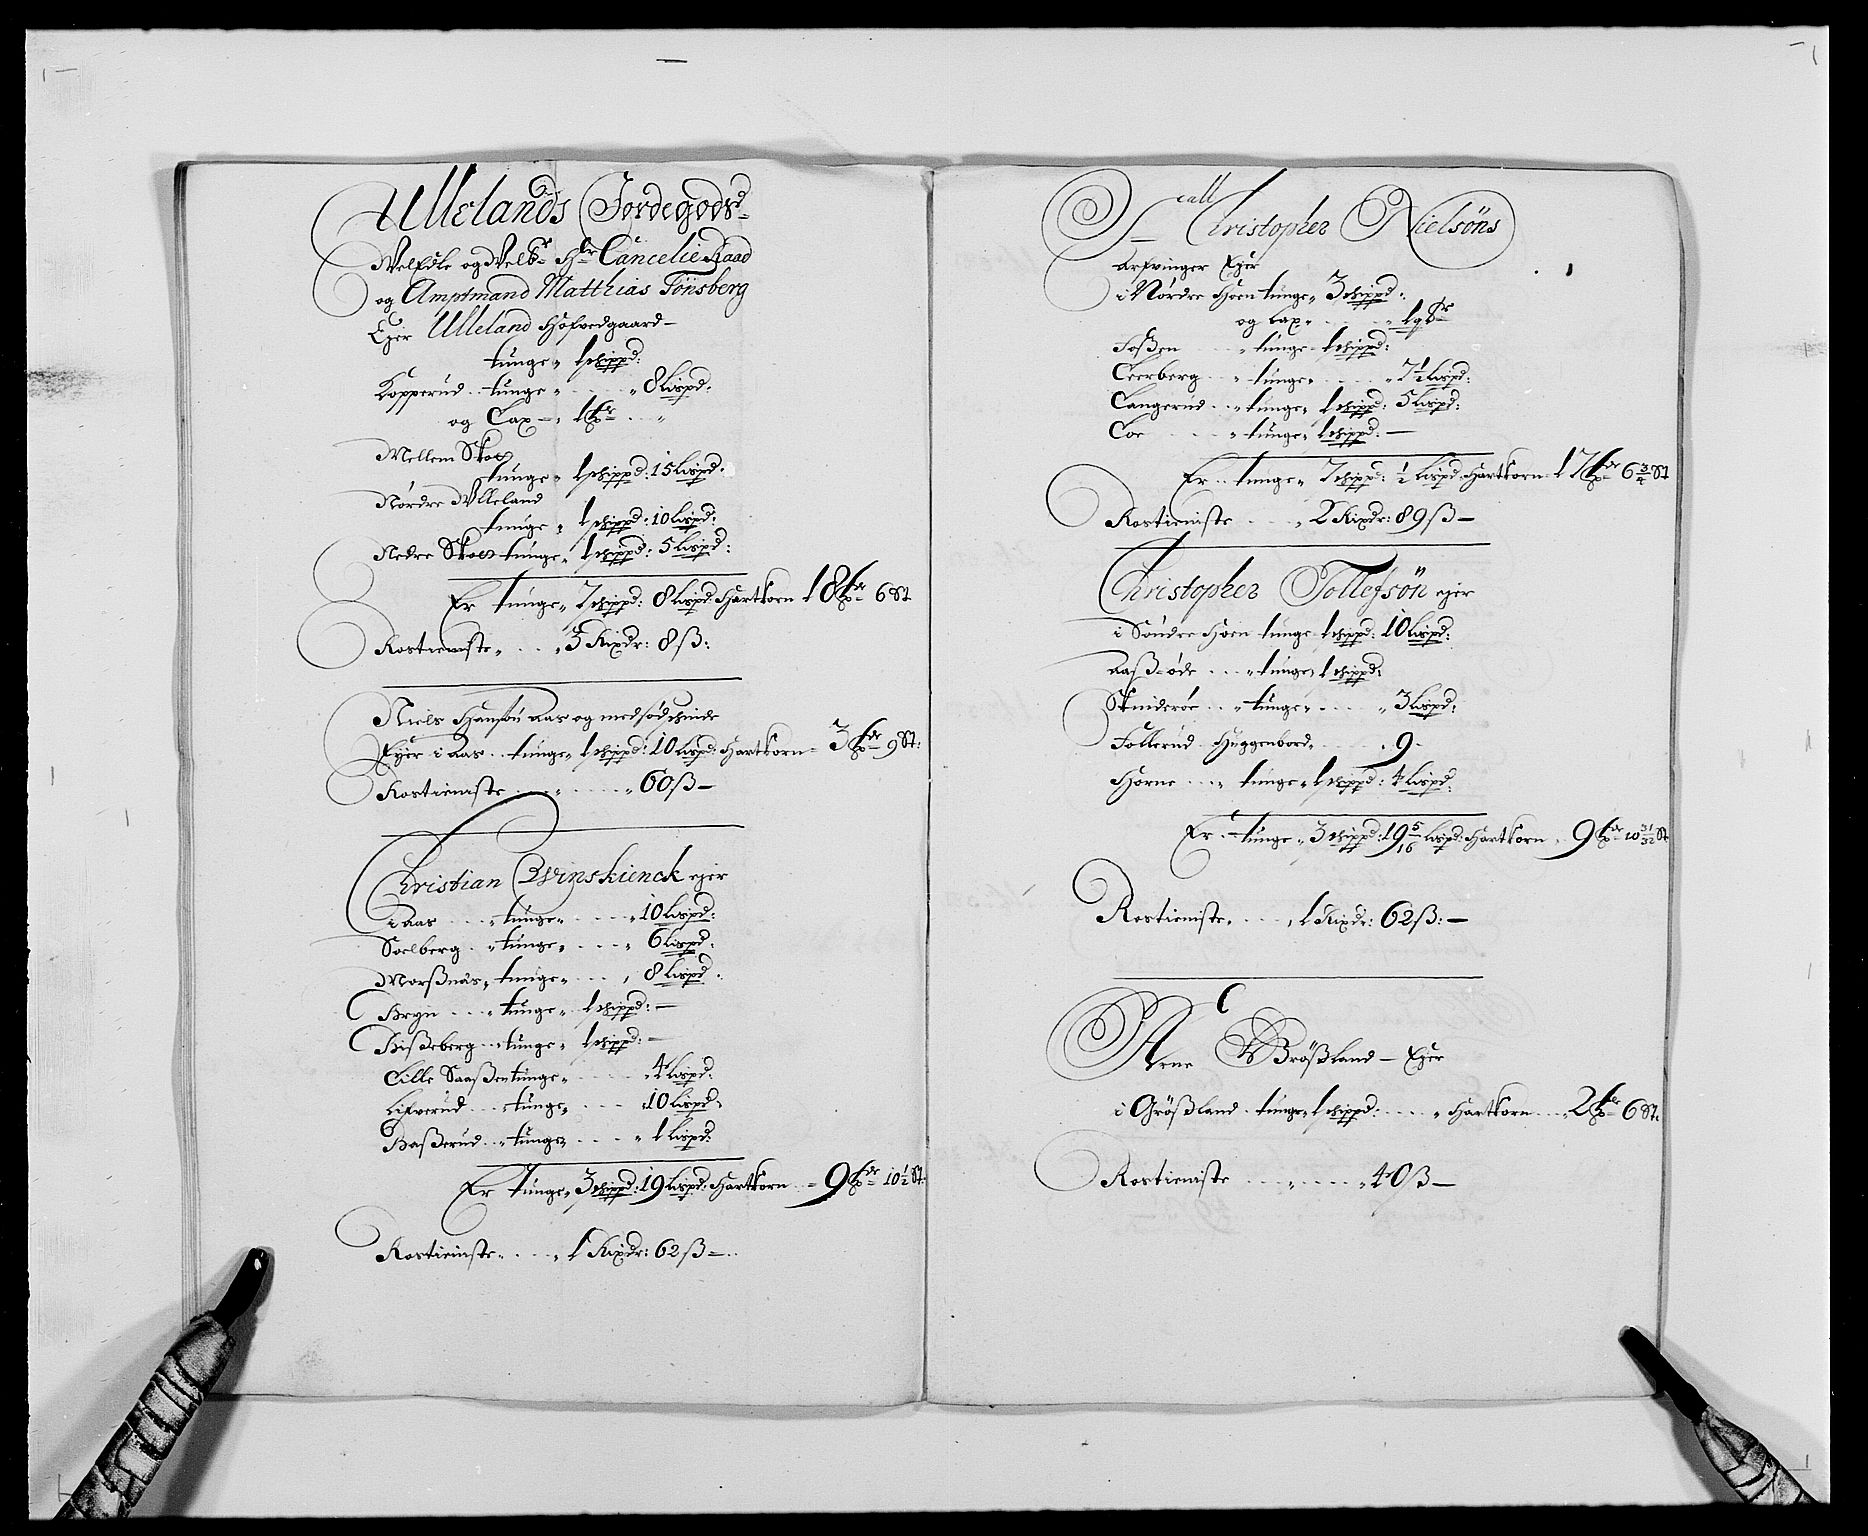 Ullelands Jordegods
Welædle og Velbr Hr Cancelie Raad
og Amptmand Matthias Tönsberg
Ejer Ulleland Hofvedgaard –
tunge „ 1 schippd:
Kopperud .. tunge „ . . . „ 8 Lispd:
og Lax – „ 1 hr „
Mellem Skoe
tunge „ 1 schippd: 15 Lispd:
Nördre Ulleland
tunge „ 1 schippd: 10 Lispd:
Nedre Skoe tunge „ 1 schippd: 5 Lispd:
Er tunge „ 7 schippd: 8 Lispd: Hartkorn 18 6 St
Rostieniste „ . . . „ 3 Rixdr: 8 ß:
Niels Hansön Aas og medsödschinde
Ejer i Aas . . tunge „ 1 schippd: 10 Lispd: Hartkorn – 3 9 St:
Rostieniste . . . „ . . . „ 60 ß –
Christian Qvinskienck ejer
i Aas . . . „ tunge „ . . . „ 10 Lispd:
Soelberg . . „ tunge „ . . . „ 6 Lispd:
Morßnäs „ tunge „ . . . „ 8 Lispd:
Bryn . . . „ tunge „ 1 schippd: –
Hißeberg . . „ tunge „ 1 schippd: –
Lille Saaßen tunge „ . . . „ 4 Lispd:
Lifverud . . . „ tunge „ . . . „ 10 Lispd:
Baßerud . . „ tunge „ . . . „ 1 Lispd:
Er tunge „ 3 schippd: 19 Lispd: Hartkorn . . – 9 10 1/2 St:
Rostieniste „ . . . „ 1 Rixdr: 62 ß –
Sl Christopher Nielsöns
Arfvinger Ejer
i Nördre Hoen tunge „ 3 schippd:
og Lax „ . . . „
Foßen . . . „ tunge – 1 schippd:
Leerberg . . „ tunge „ . . . „ 7 1/2 Lispd:
Langerud . . „ tunge „ 1 schippd: 5 Lispd:
Loe . . . „ tunge „ 1 schippd: –
Er . . tunge „ 7 schippd: 1/2 Lispd: Hartkorn – 17 6 3/4 St
Rostieniste . . . „ 2 Rixdr: 89 ß –
Christopher Tollefsön ejer
i Söndre Hoen tunge 1 schippd: 10 Lispd:
Aaß-öde . . . „ tunge „ 1 schippd:
Skinderöe . . „ tunge „ . . . „ 3 Lispd:
Follerud . Huggenbord „ . . . „ 9.
Horne . . . „ tunge „ 1 schippd: 4 Lispd:
Er . . tunge „ 3 schippd: 19 5/16 Lispd: Hartkorn . „ 9 10 31/32 St
Rostieniste „ . . . „ 1 Rixdr: 62 ß: –
Arne Größland – Ejer
i Größland . tunge „ 1 schippd: . . . „ Hartkorn . . . „ 2 6 St:
Rostieniste . . . „ . . . „ 40 ß –